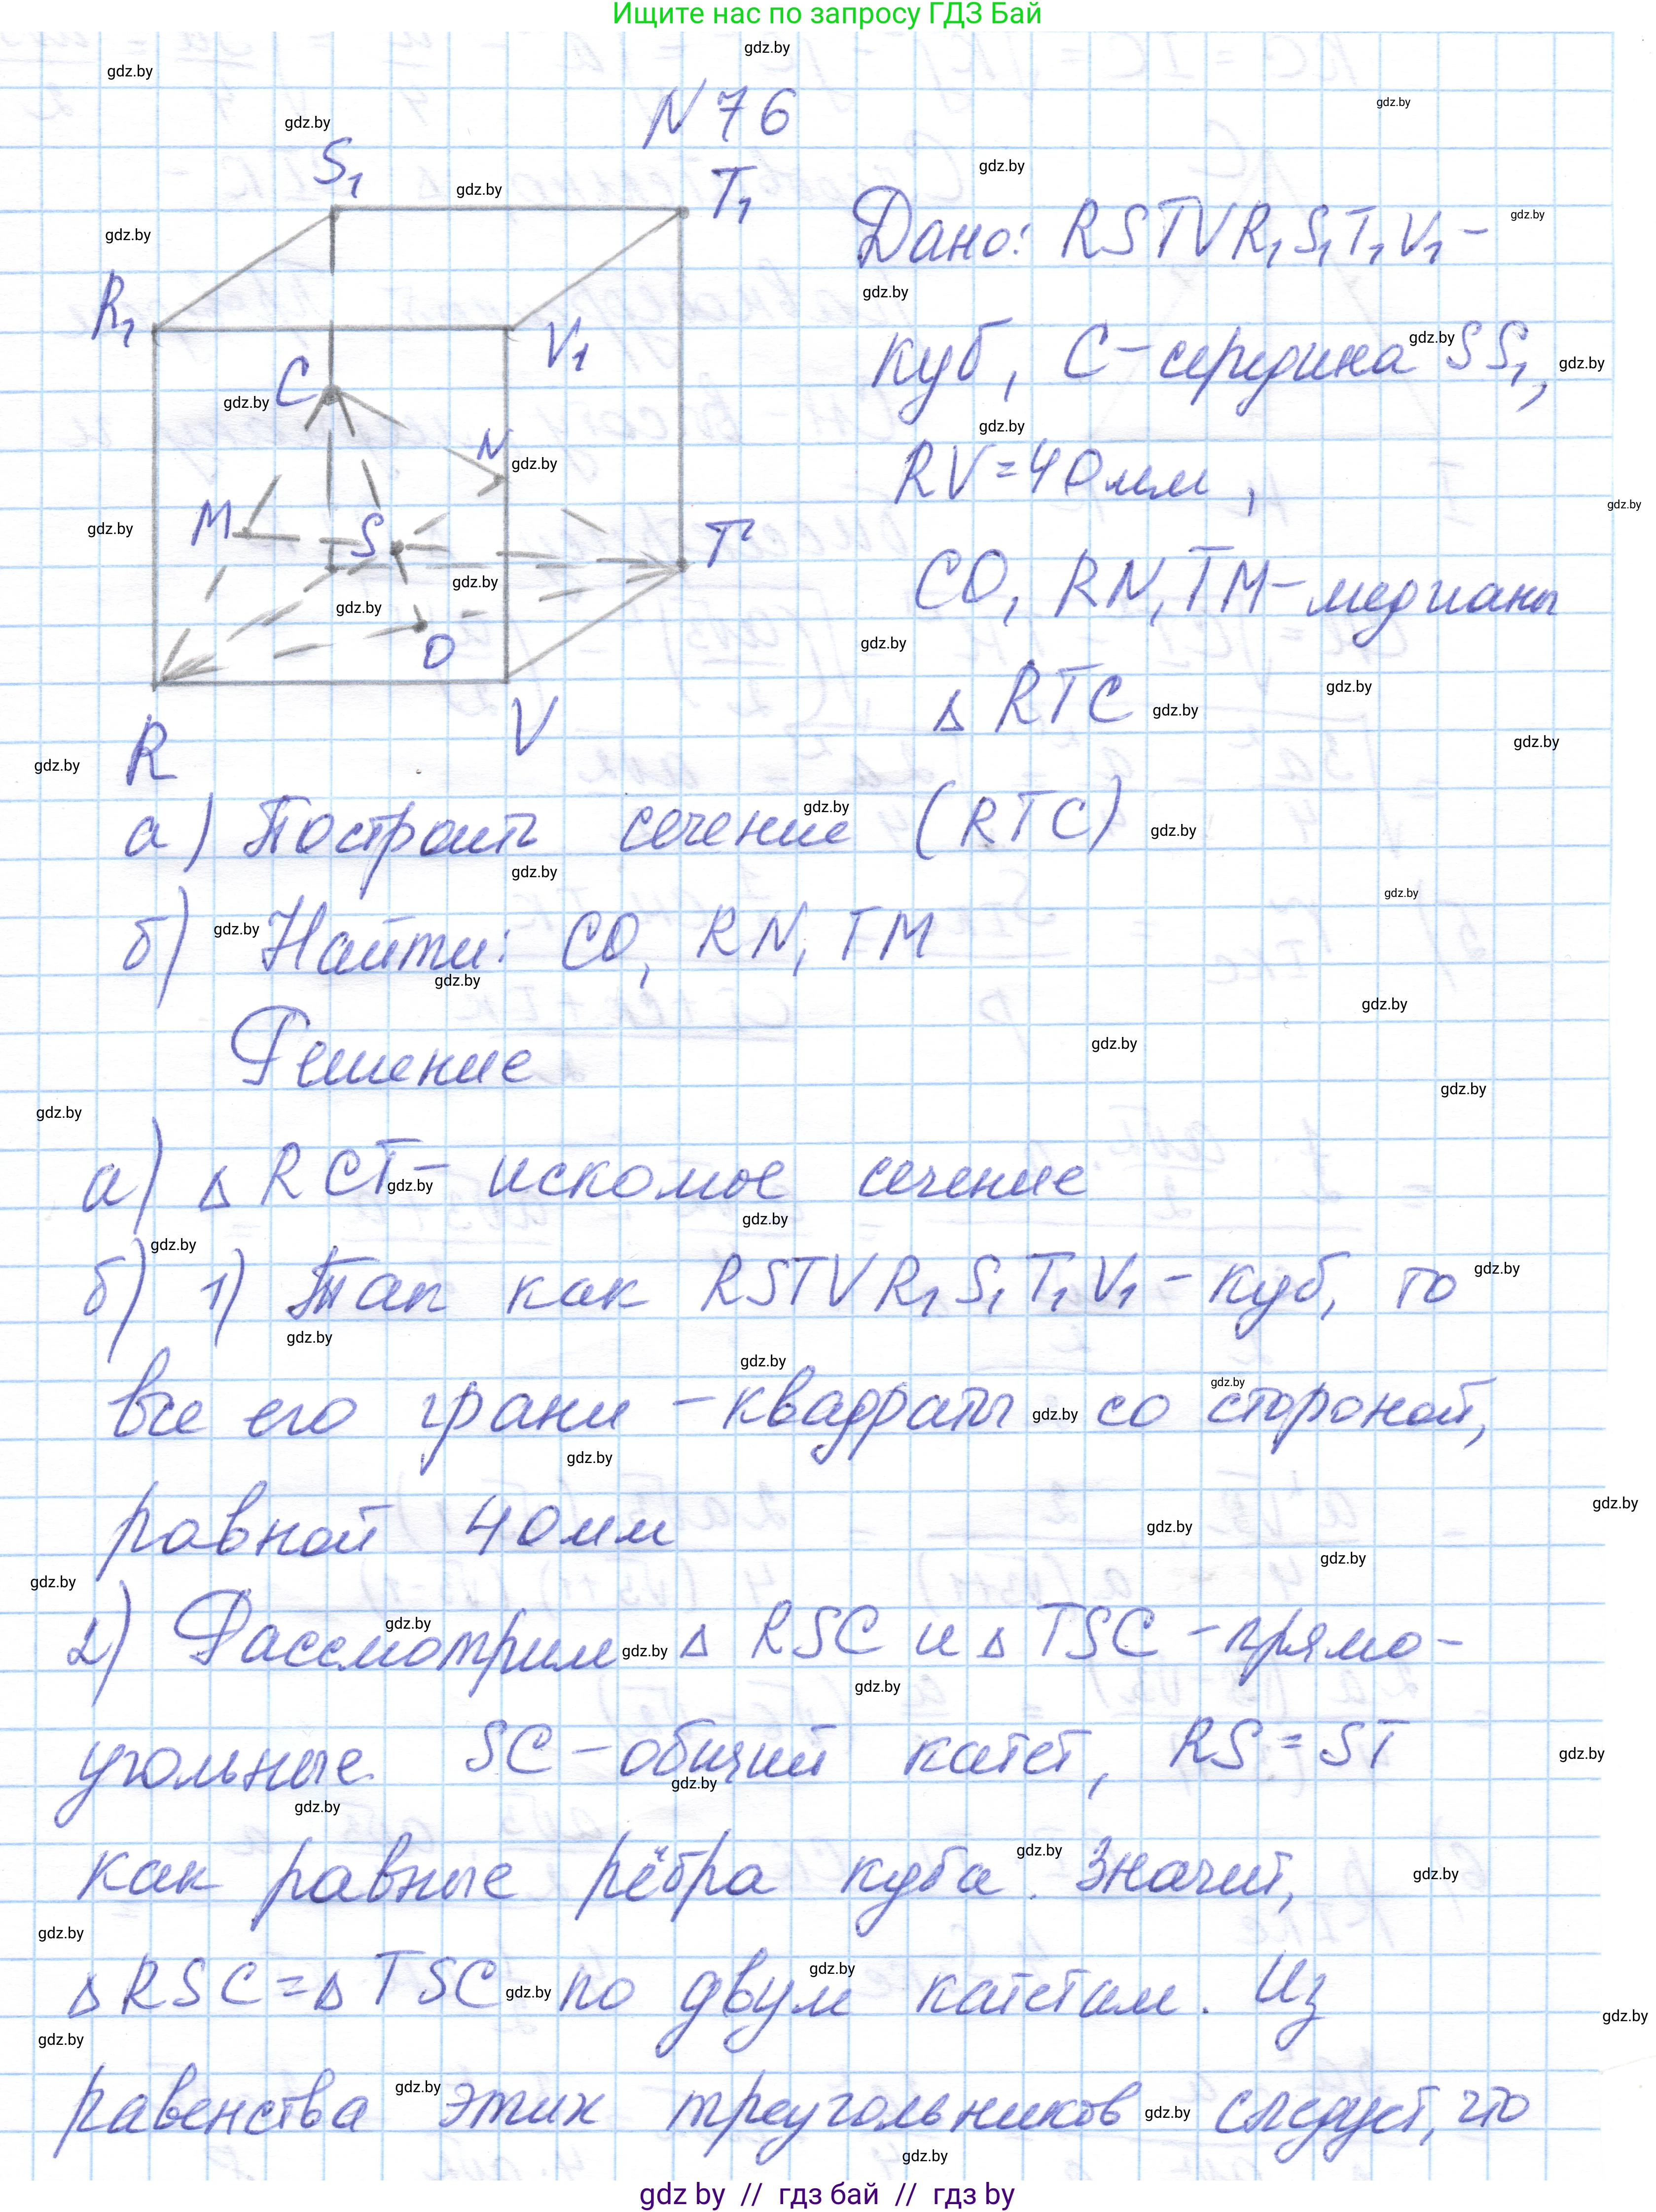 Ищите нас по запросу ГДЗ Бай
N 76
S₁
T₁
R₁
V₁
C
N
M
S
T
O
R
V
Дано: RSTVR₁S₁T₁V₁ –
куб, C – середина SS₁,
RV = 40 мм,
CO, RN, TM – медианы
△ RTC
а) Построить сечение (RTC)
б) Найти: CO, RN, TM
Решение
а) △ RCT – искомое сечение
б) 1) Так как RSTVR₁S₁T₁V₁ – куб, то
все его грани – квадраты со стороной,
равной 40 мм
2) Рассмотрим △ RSC и △ TSC – прямо-
угольные. SC – общий катет, RS = ST
как равные рёбра куба. Значит,
△ RSC = △ TSC по двум катетам. Из
равенства этих треугольников следует, что
gdz.by
gdz by // гдз бай // гдз by